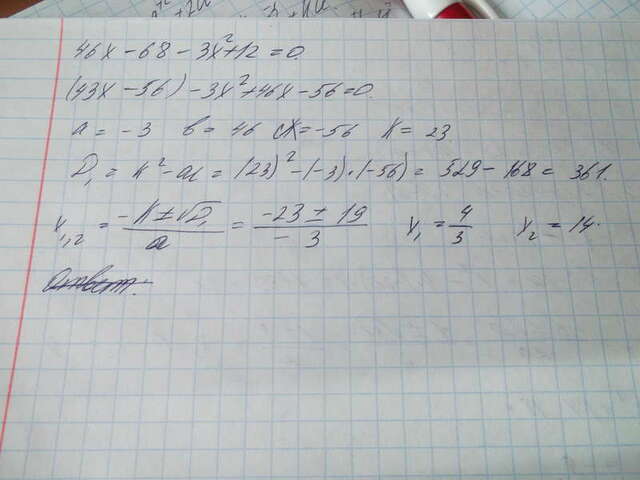 46x - 68 - 3x² + 12 = 0.
(43x - 56) - 3x² + 46x - 56 = 0.
a = -3 b = 46 c = -56 k = 23
D₁ = k² - ac = (23)² - (-3)·(-56) = 529 - 168 = 361.
x₁,₂ = (-k ± √D₁)/a = (-23 ± 19)/(-3) x₁ = 4/3 x₂ = 14.
Ответ: